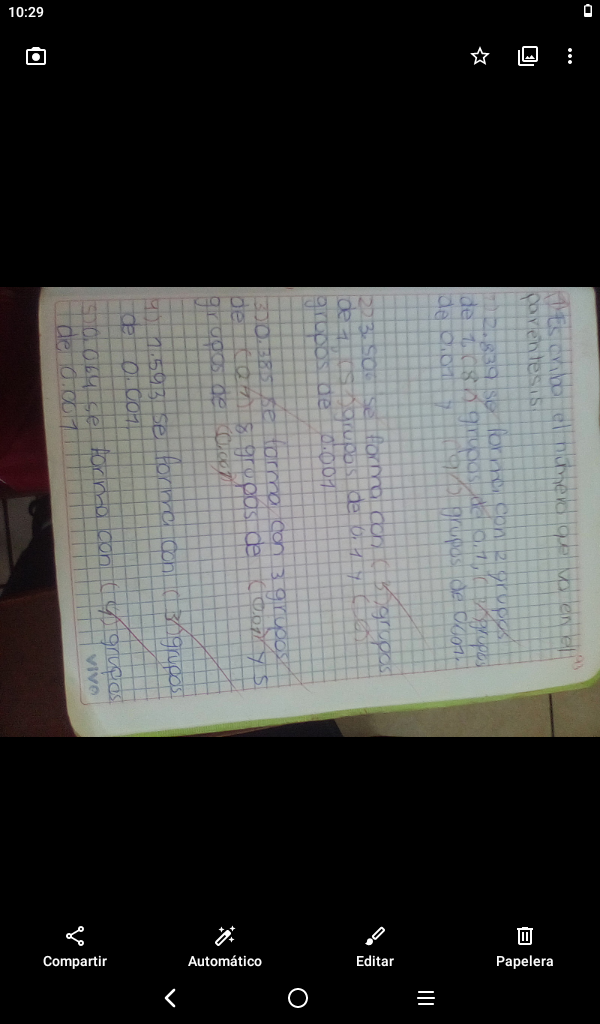 10:29
el número que va en el
paréntesis
1) 2.839 se forma con 2 grupos
de 1, (8) grupos de 0.1, (3) grupos
de 0.01 y (9) grupos de 0.001.
se forma con (3) grupos
de 1, (5) grupos de 0.1 y
grupos de 0.001
3) 0.385 se forma con 3 grupos
de (0.1) 8 grupos de (0.01) y 5
grupos de
4) 1.593 se forma con (3) grupos
de 0.001
5) 0.064 se forma con (4) grupos
de 0.001
vivo
Compartir
Automático
Editar
Papelera